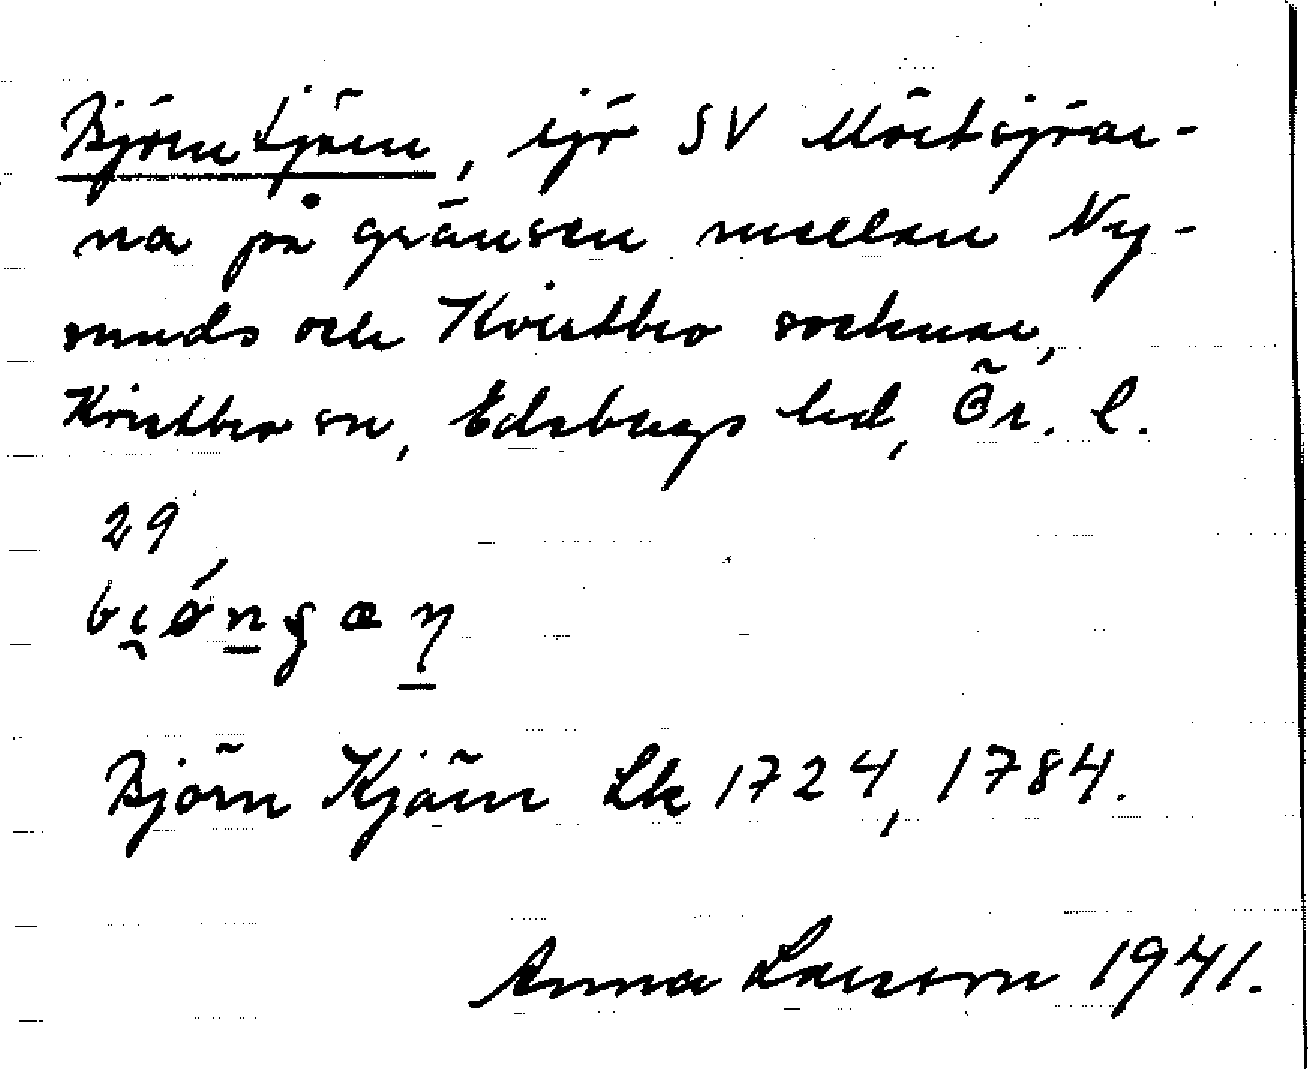 Björntjärn, sjö SV Mörtsjöar-
na på gränsen mellan Ny-
sunds och Kvistbro socknar,
Kvistbro sn, Edsbergs hd, Ör. l.
29
Björn Kjärn Lk 1724, 1784.
Anna Larsson 1941.